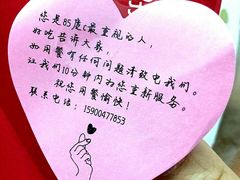 您是85度c最重视的人,
好吃告诉大家,
如用餐有任何问题请致电我们,
让我们10分钟内为您重新服务。
祝您用餐愉快!
联系电话: 15900477853